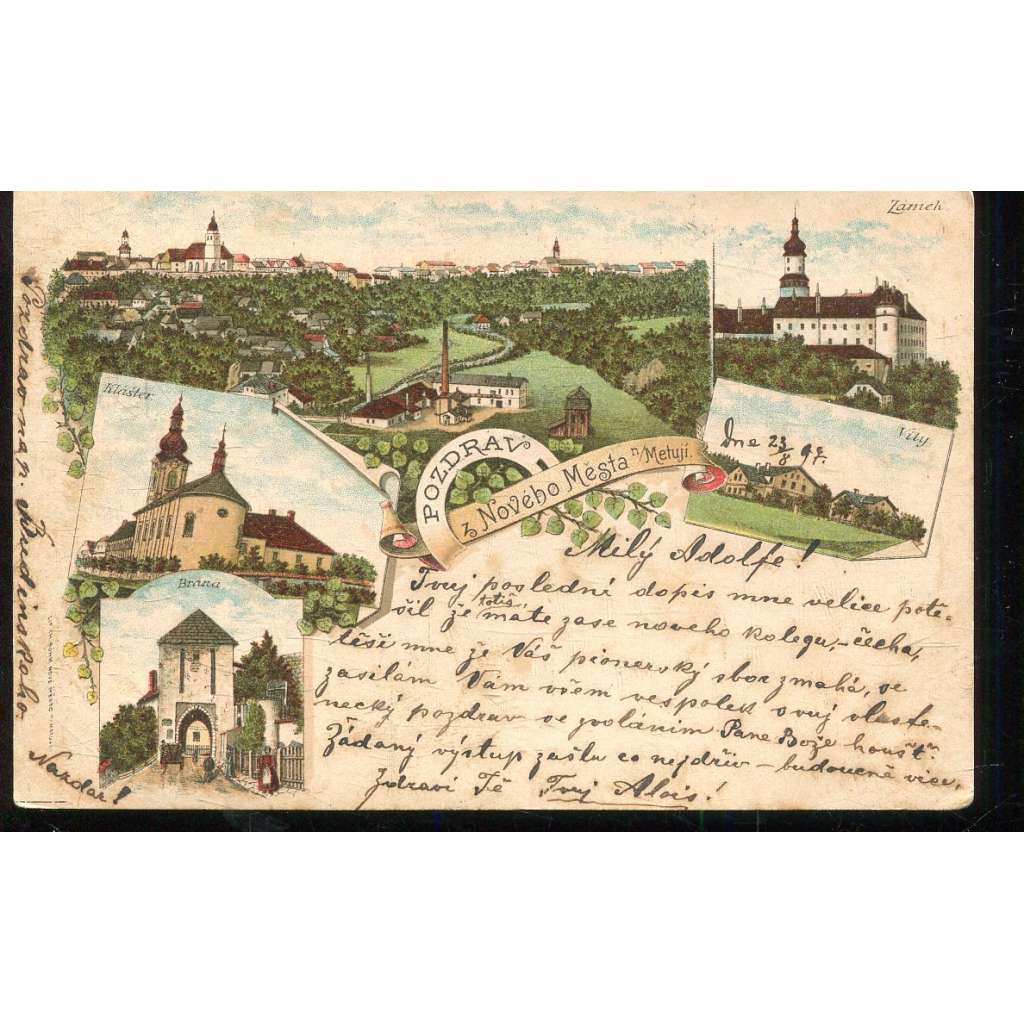 Zámek
Klášter
Vily.
Brána
POZDRAV
z Nového Města n/Metují.
Dne 23/8 97.
Milý Adolfe!
Tvuj poslední dopis mne velice potě-
šil je totiž máte zase noveho kolegu, - čecha,
těší mne že Váš pionerský sbor zmahá, se
zasílám Vám všem vespolek svuj vlaste-
necký pozdrav se zvoláním Pane Bože houšť.
Žádaný výstup zašlu co nejdřív - budouené vice,
Zdraví Tě Tvuj Alois!
Pozdrav na p.
Nazdar!